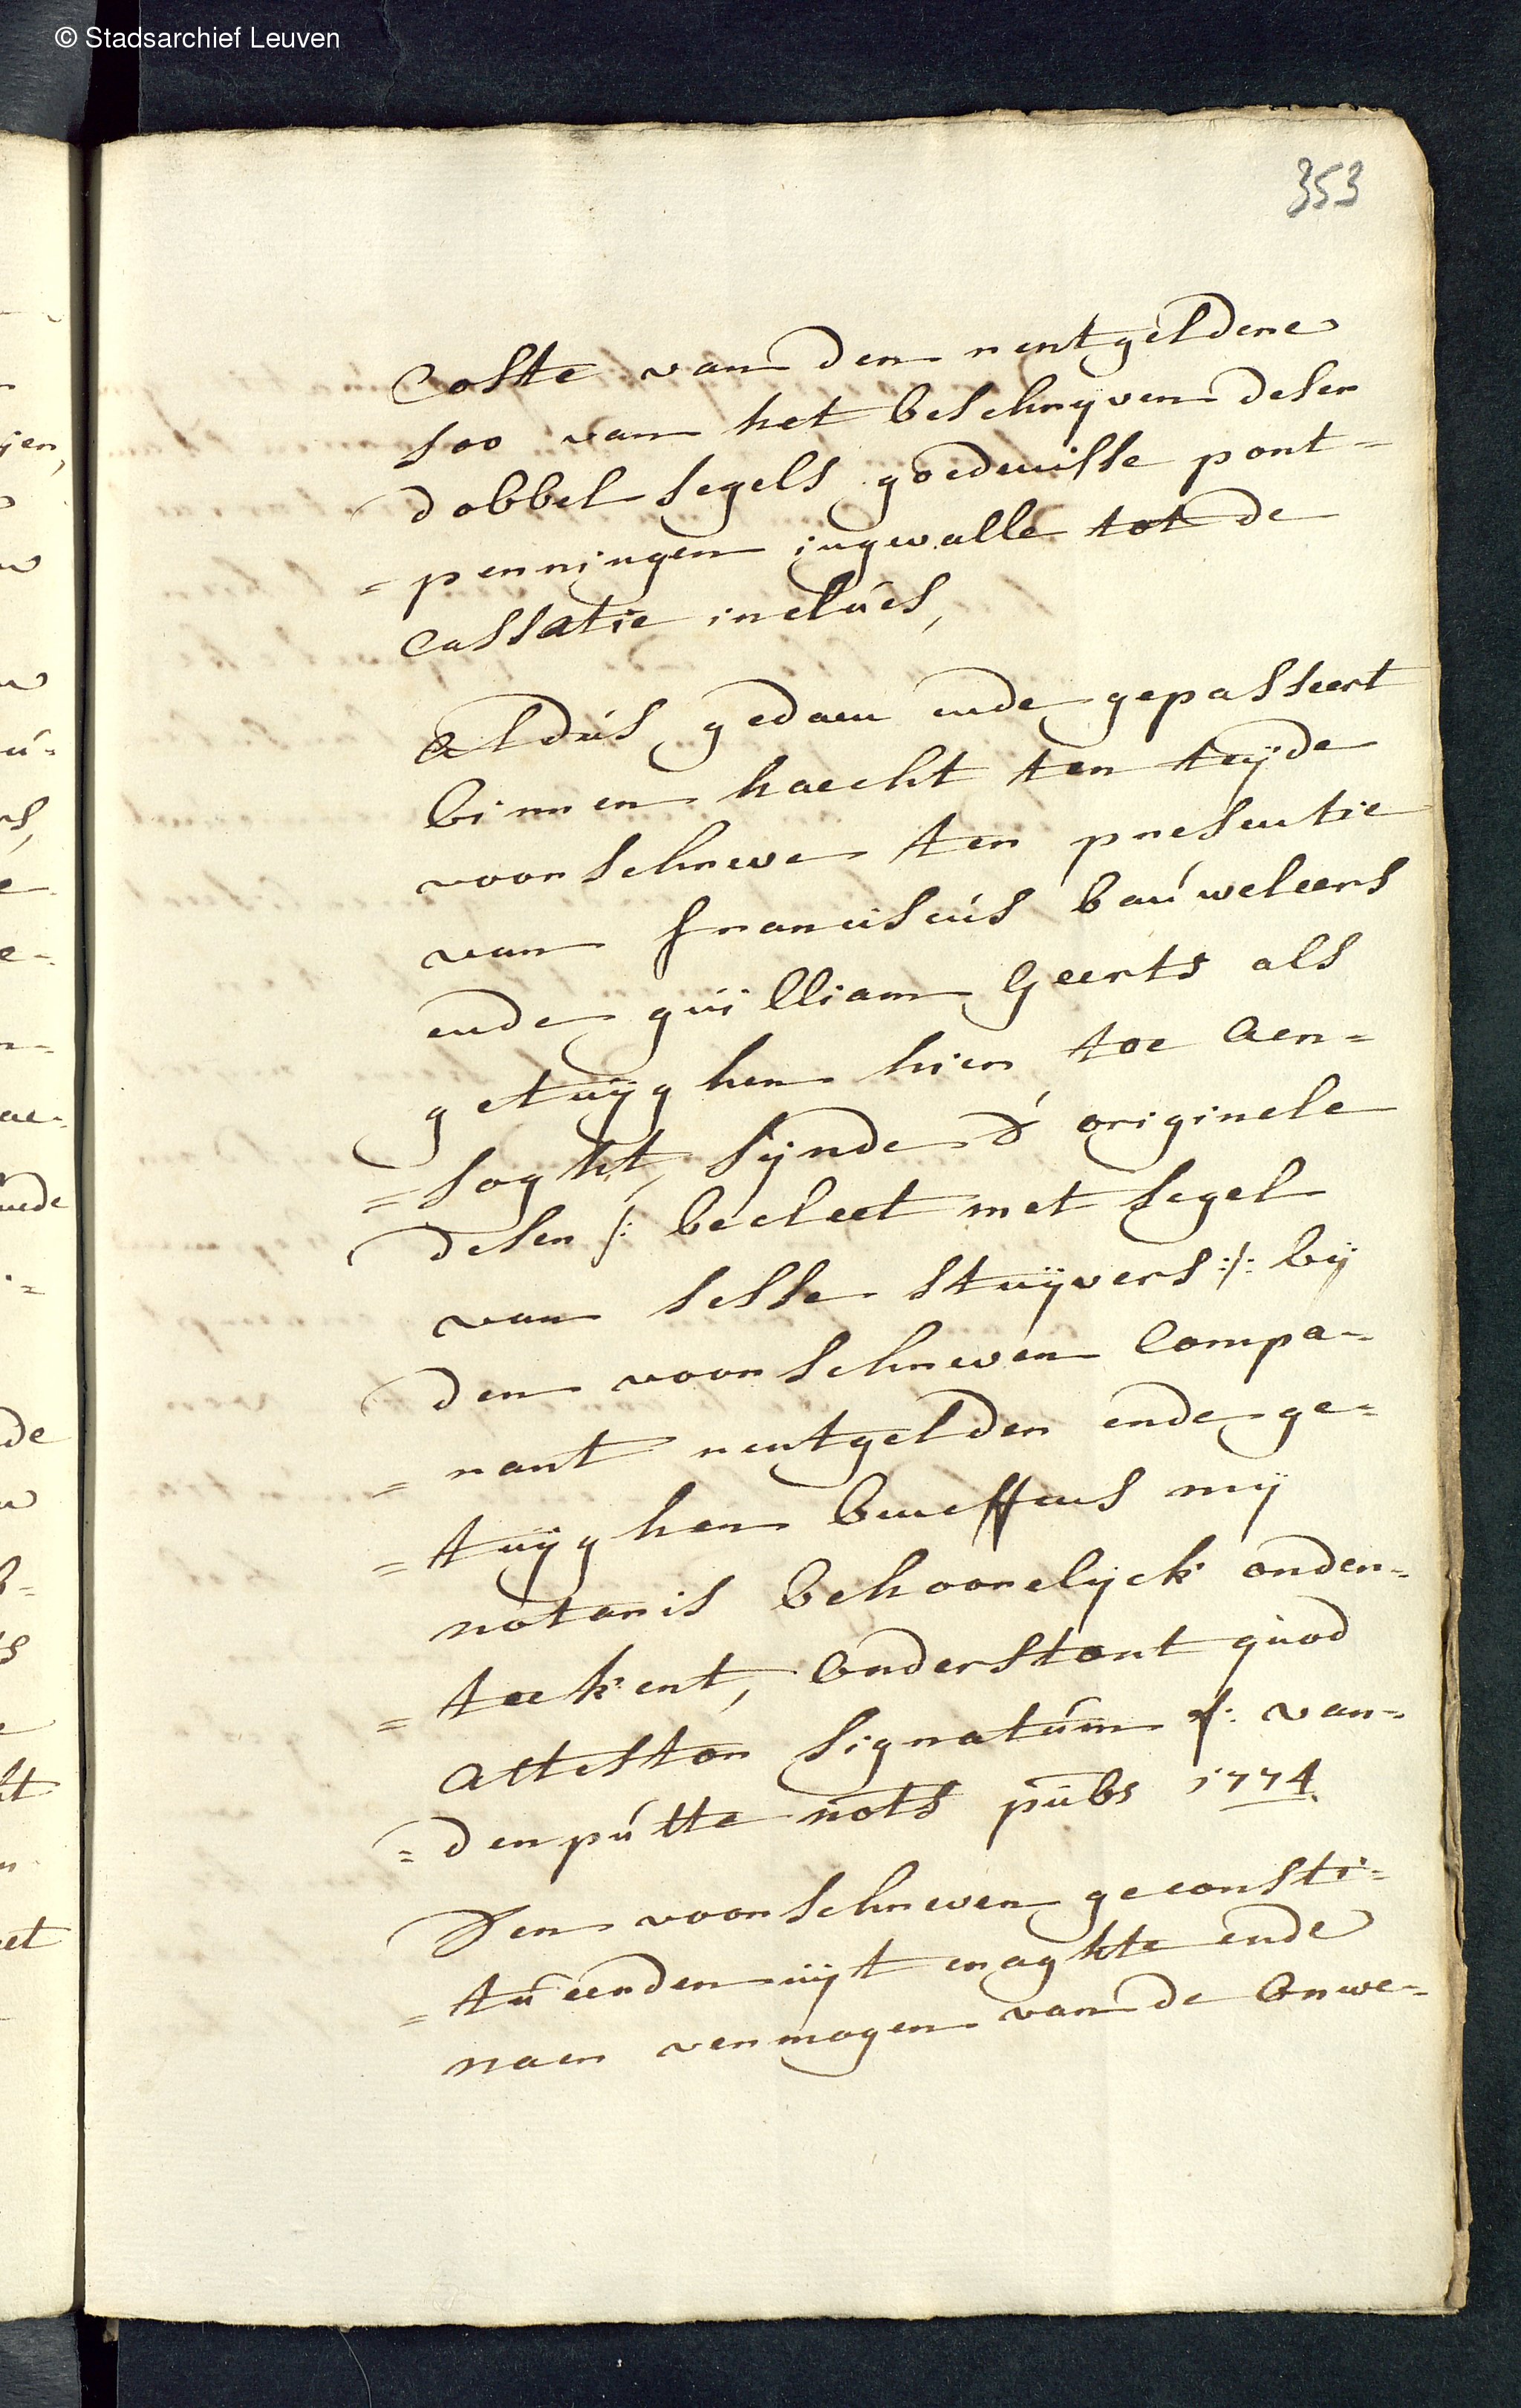 © Stadsarchief Leuven
353
Coste van den rentgeldere
soo van het beschryven deser
dobbel segels goedenisse pont=
=penningen ingevalle tot de
Cassatie inclúés,
Aldús gedaen ende gepasseert
binnen haecht ten teyde
voorschreve ter presentie
van franciscús baúweleers
ende guilliam Geerts als
getuÿghen hier toe Aen=
=soght, sÿnde d'originele
deser /: becleet met segel
van sesse stuÿvers :/: bÿ
den voorschreven Compa=
=rant rentgelder ende ge=
=tuÿghen beneffens mÿ
notaris behoorelyck onder=
=teekent, Onderstont quod
Attestor signatúm /: van=
=denpútte nots púbs 1774
Den voorschreven geconsti=
=túeerden uÿt maghte ende
naer vermogen van de Onwe=